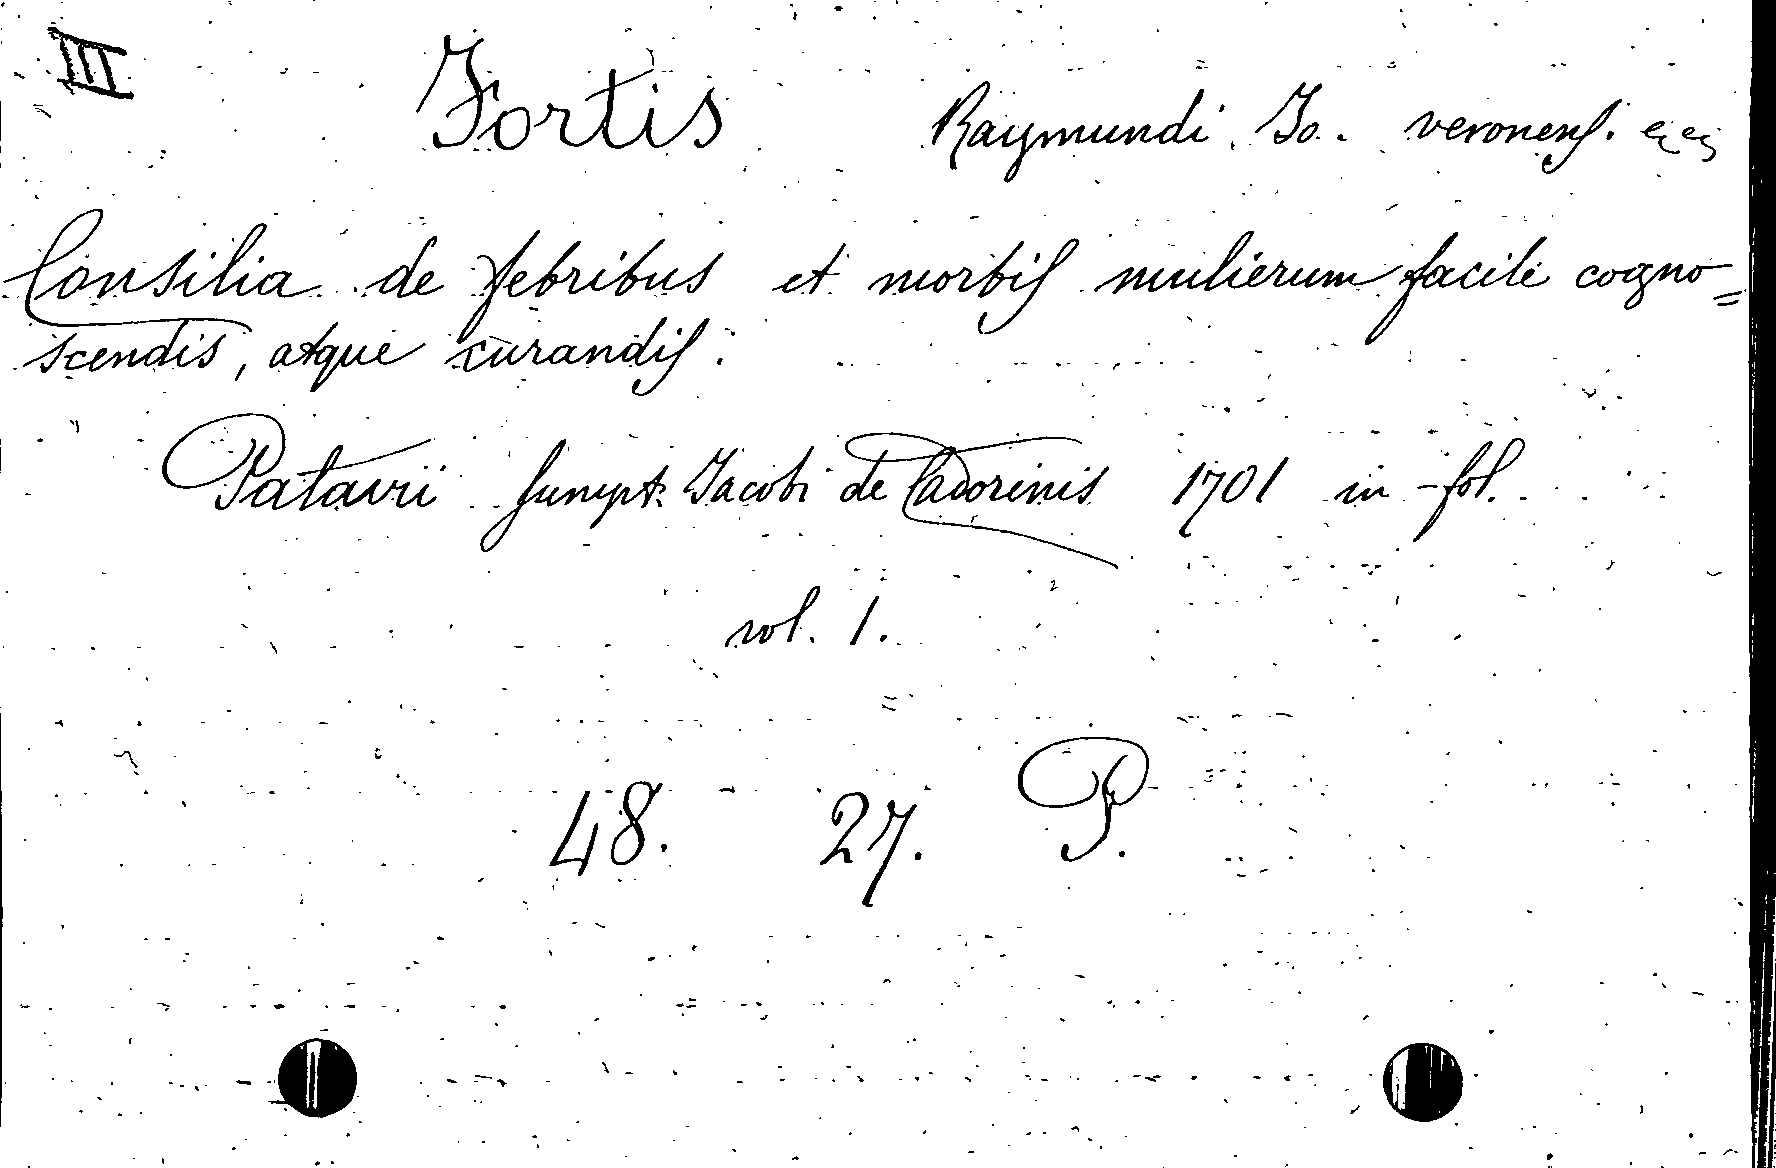 III
Fortis Raymundi Jo. veronenſ. eq eq
Consilia de febribus et morbiſ mulierum facile cogno=
scendis, atque curandiſ:
Patavii ſumpt. Jacobi de Cadorinis 1701 in-fol.
vol. 1.
48. 27. P.